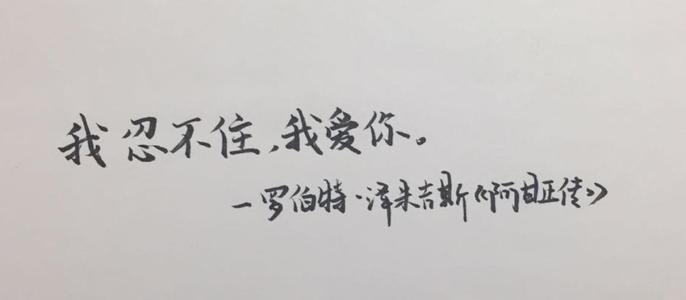 我忍不住,我爱你。
—罗伯特·泽米吉斯《阿甘正传》